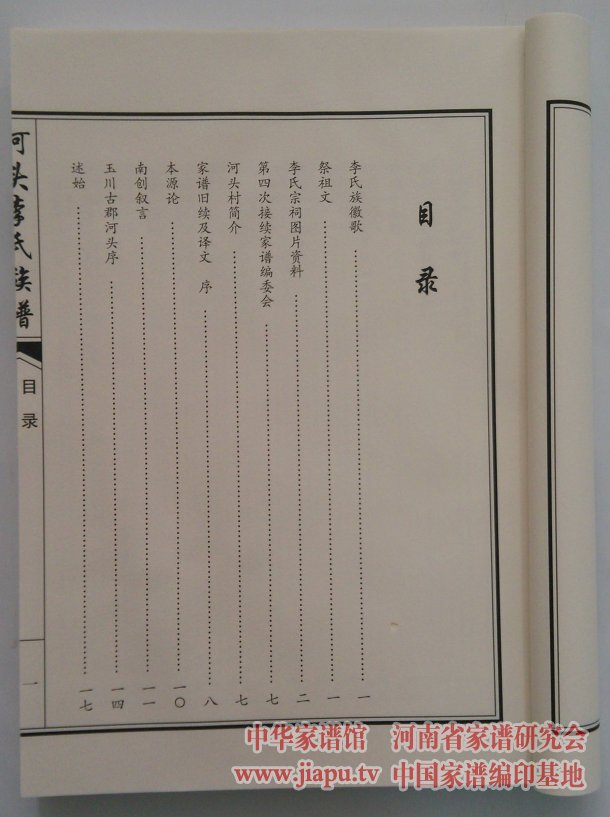 目录
李氏族徽歌……一
祭祖文……一
李氏宗祠图片资料……二
第四次接续家谱编委会……七
河头村简介……七
家谱旧续及译文 序……八
本源论……一〇
南创叙言……一一
玉川古郡河头序……一四
述始……一七
河头李氏族谱
目录
一
中华家谱馆 河南省家谱研究会
www.jiapu.tv 中国家谱编印基地